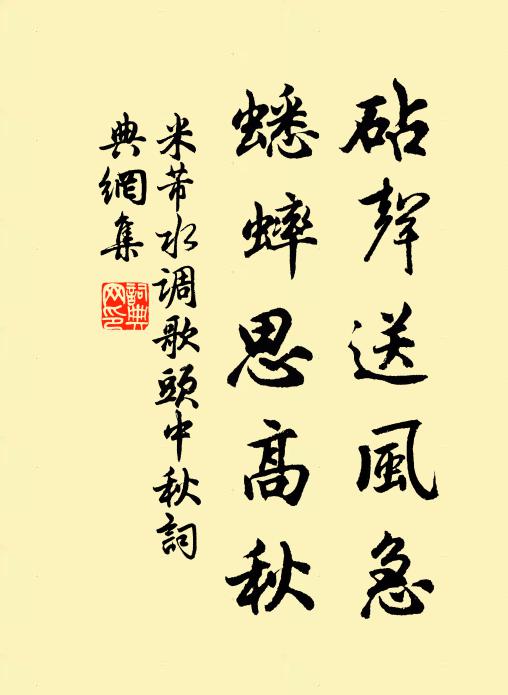 砧聲送風急
蟋蟀思高秋
米芾水调歌頭中秋詞
典網集
詞典
网印